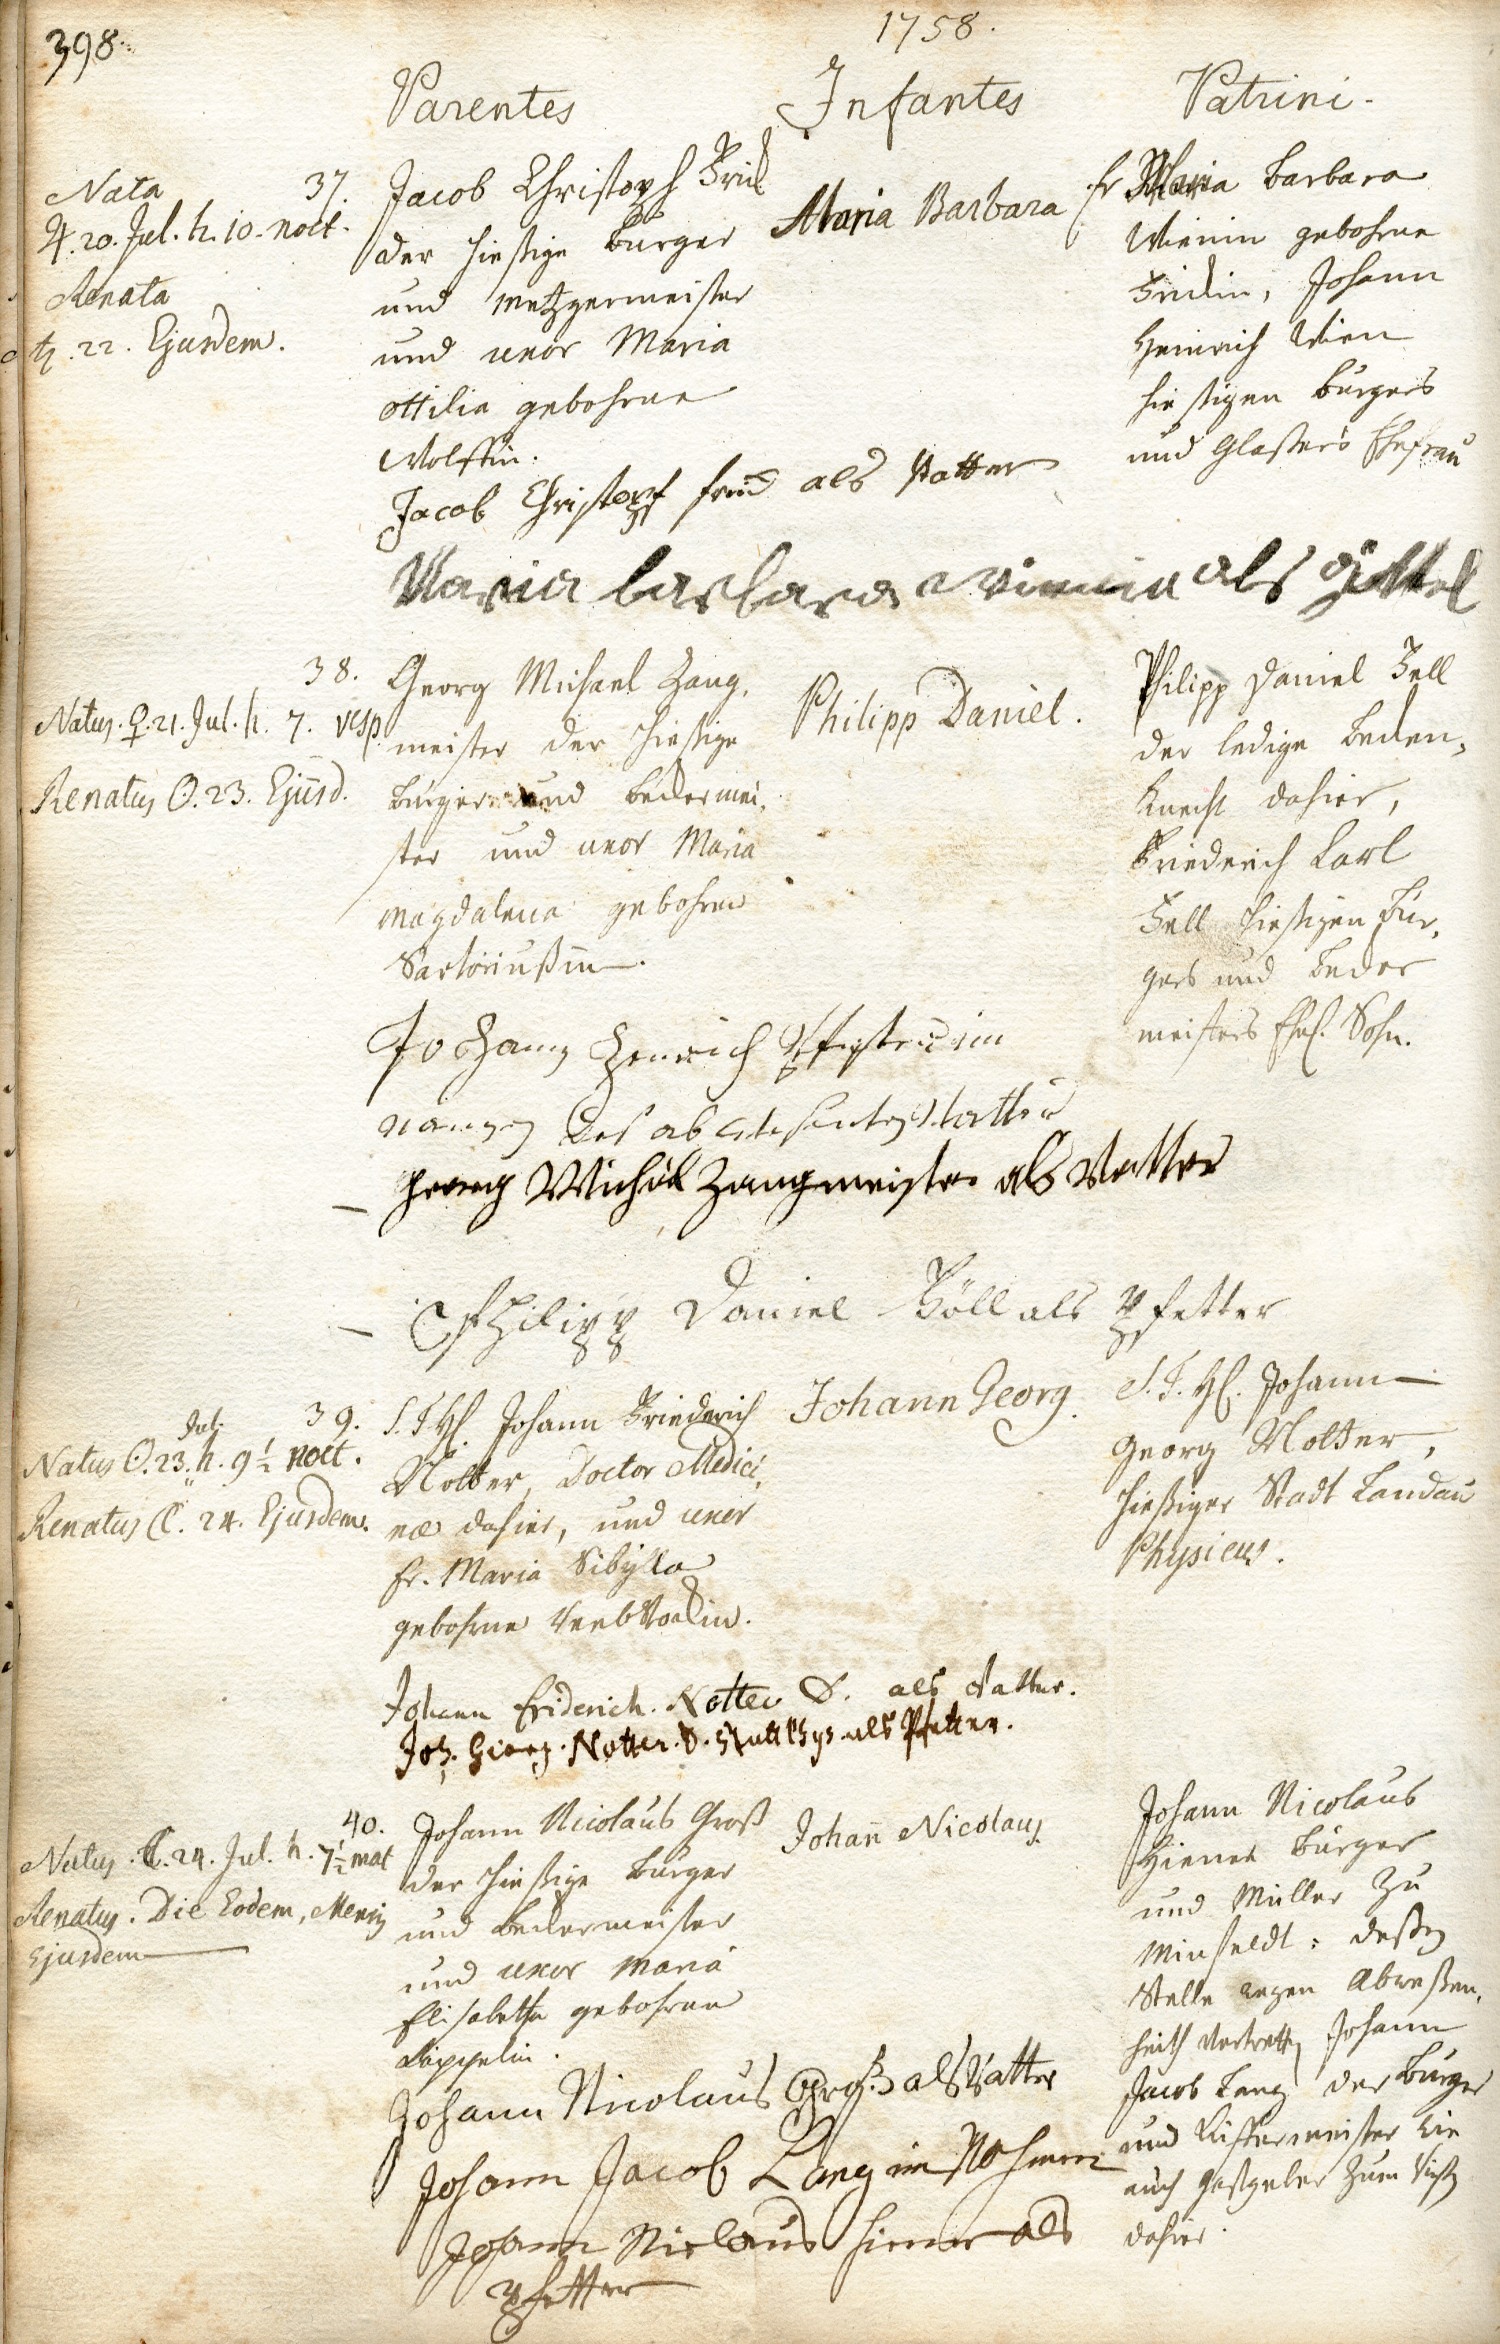 398.
1758.
Parentes Infantes Patrini.
Nata
♃. 20. Jul. h. 10. noct.
Renata
♄. 22. Ejusdem.
37.
Jacob Christoph
der hießige Burger
und Metzgermeister
und uxor Maria
Ottilia gebohrne
Wolffin.
Maria Barbara
fr Maria Barbara
Wienin gebohrne
Johann
Heinrich Wien
hießigen Burgers
und Glaßers Ehefrau
Jacob Christopf als Vatter
Maria barbara wienin als göttel
38.
Natus. ♀. 21. Jul. h. 7. vesp.
Renatus ☉. 23. Ejusd.
Georg Michael Zang,
meister der hießige
Burger und beckermei,
ster und uxor Maria
Magdalena gebohrne
Sartoriußin.
Philipp Daniel.
Philipp Daniel Zell
der ledige Becken,
knecht dahier,
Friederich Carl
Zell hießigen Bur,
gers und Becker
meisters Ehel. Sohn.
Johann Henrich im
namen des Vatter
georg Michäl Zangmeister als Vatter
Philipp Daniel Zöll als Pfetter
39.
Jul.
Natus ☉. 23. h. 9 1/2 noct.
Renatus ☾. 24. Ejusdem.
S. T. H. Johann Friederich
Notter, Doctor Medici,
næ dahier, und uxor
fr. Maria Sibylla
gebohrne
Johann Georg.
S. T. H. Johann
Georg Notter,
hießiger Stadt Landau
Physicus.
Johann Friderich. Notter D. als Vatter.
Joh. Georg. Notter. D. als Pfetter.
40.
Natus. ☾. 24. Jul. h. 7 1/2 mat
Renatus. Die Eodem, Mensis
Ejusdem
Johann Nicolaus Groß
der hießige Burger
und Beckermeister
und uxor Maria
Elisabetha gebohrne
Johann Nicolaus
Johann Nicolaus
Hiener Burger
und Müller zu
Minfeldt: deßen
Stelle wegen Abweßen,
heith vertretten Johann
Jacob Lang der Burger
und Kieffermeister wie
auch Gastgeber zum
dahier.
Johann Nicolaus Groß als Vatter
Johann Jacob Lang im Nahmen
Johann Niclaus hiener als
Pfetter